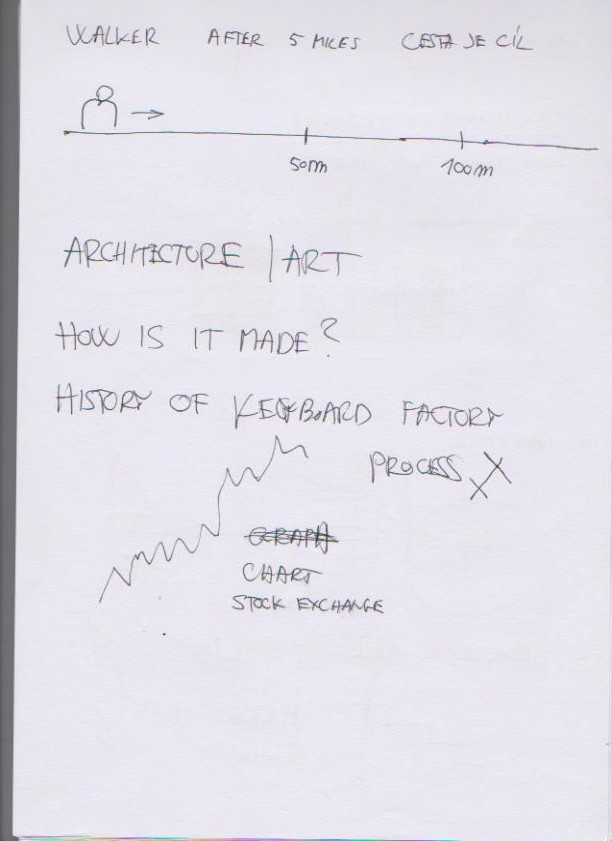 WALKER AFTER 5 MILES CESTA JE CÍL
50m 100m
ARCHITECTURE | ART
HOW IS IT MADE?
HISTORY OF KEYBOARD FACTORY
PROCESS
GRAPH
CHART
STOCK EXCHANGE